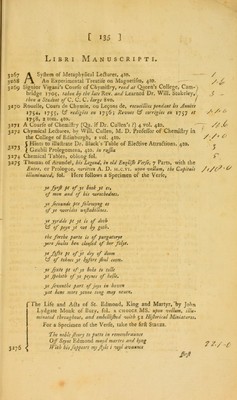 [ 135 ]
LIBRI MANUSCRIPTI.
3267 A System of Metaphysical Lectures, 4to.
3268 An Experimental Treatise on Magnetism, 4to.
3269 Signior Vigani's Course of Chymistry, read at Queen's College, Cam-
bridge 1705, taken by the late Rev. and Learned Dr. Will. Stukeley,
then a Student of C. C. C. large 8vo.
3270 Rouelle, Cours de Chymie, ou Leçons de, recueillies pendant les Années
1754, 1755, & redigées en 1756; Revues & corrigées en 1757 et
1758, 2 tom. 4to.
3271 A Course of Chemistry (Qu. if Dr. Cullen's ?) 4 vol. 4to.
3272 Chemical Lectures, by Will. Cullen, M. D. Professor of Chemistry in
the College of Edinburgh, 2 vol. 4to.
3273 Hints to illustrate Dr. Black's Table of Elective Attractions. 4to.
Gaubii Prolegomena, 4to. in russia
3274 Chemical Tables, oblong fol.
3275 Thomas of Arundel, his Legend, in old English Verse, 7 Parts, with the
Entre, or Prologue, written A. D. M.C.VI. upon vellum, the Capitals
illuminated, fol. Here follows a Specimen of the Verse,
ye fyrst pt of ye book yt es,
of men and of his wretchednes.
ye secounde pte folowynge es
of ye warldis unstabilnes.
ye yrydde pt yt is deth
& of peyn yt ran by geth.
the fierthe parte is of purgatorye
yere soules ben clensed of her folye.
ye fyfte pt of ye dey of doom
& of tokens yt before shul coom.
ye sixte pt of ye hole to telle
yt speketh of ye peynes of helle.
ye seuenthe part of joys in heven
yat bene more yenne tong may neven.
3276 The Life and Acts of St. Edmond, King and Martyr, by John
Lydgate Monk of Bury, fol. a CHOICE MS. upon vellum, illu-
minated throughout, and embellished with 52 Historical Miniatures.
For a Specimen of the Verse, take the first Stanza.
The noble story to putte in remembraunce
Off Seynt Edmond mayd martre and kyng
With his support my stile i wyl avaunce
22.1.0